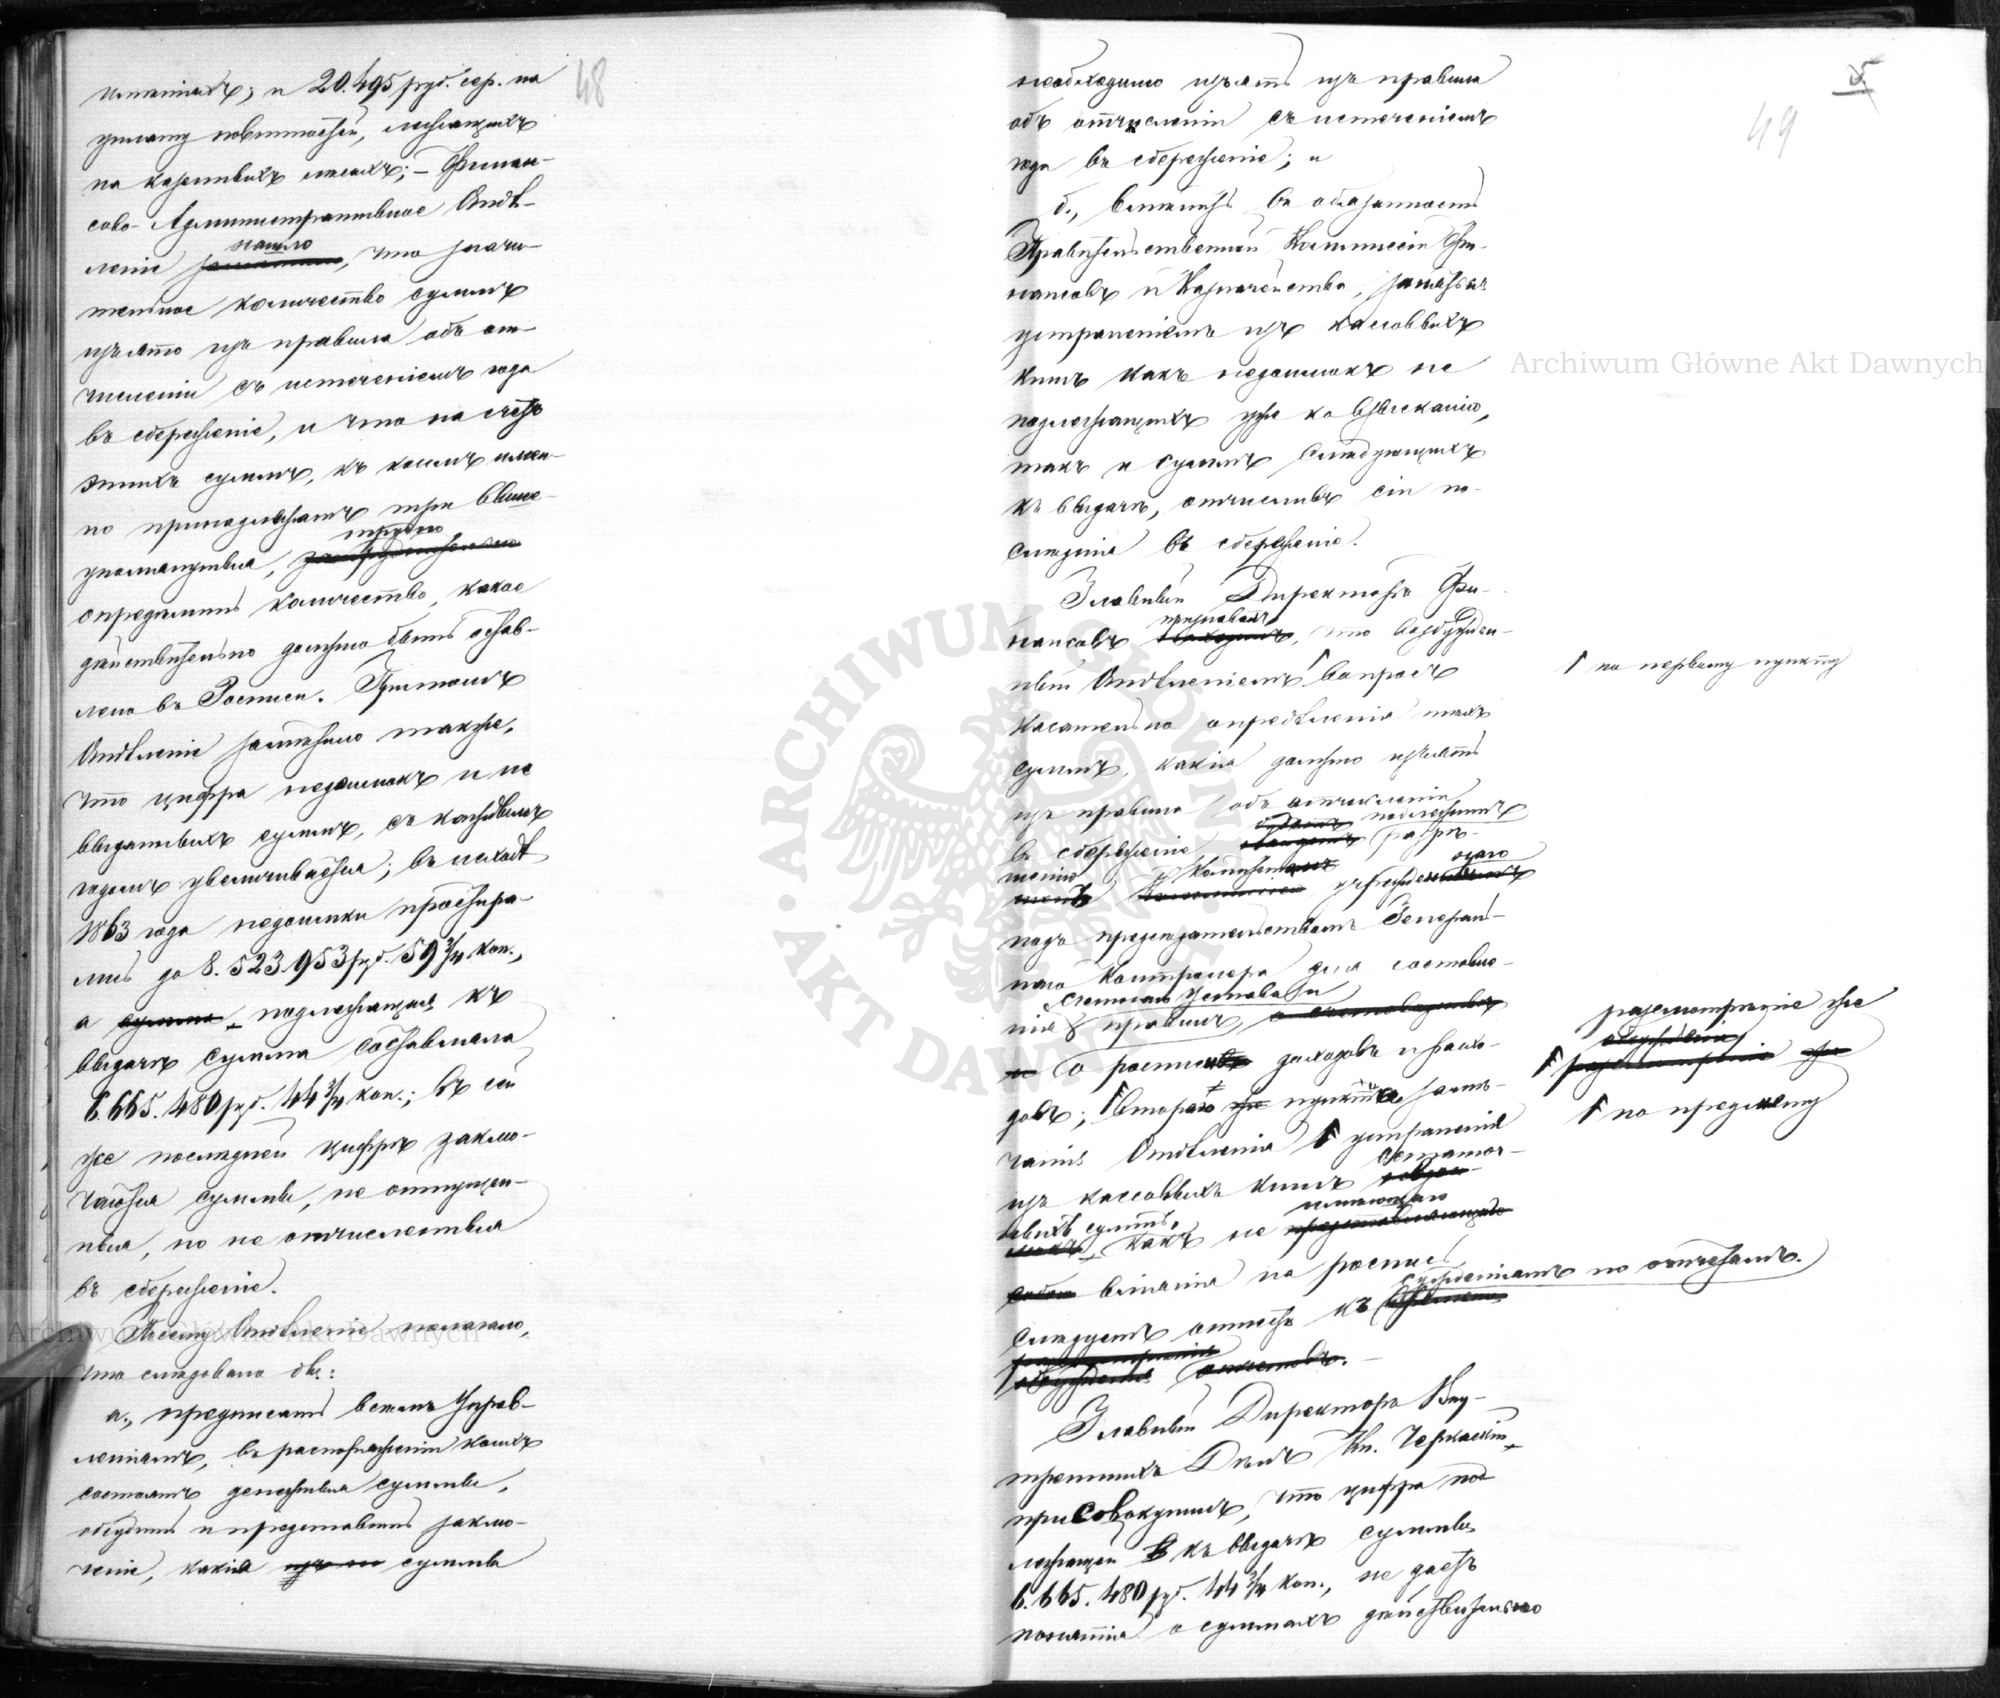 48
имѣніяхъ; и 20.495 руб. сер. на
уплату повинностей, лежащихъ
на казенныхъ лѣсахъ; – Финан-
сово-Административное Отдѣ-
леніе нашло, что значи-
тельное количество суммъ
изъято изъ правила объ от-
численіи съ истеченіемъ года
въ сбереженіе, и что на счетъ
этихъ суммъ, къ коимъ имен-
но принадлежатъ три выше-
упомянутыя, трудно
опредѣлить количество, какое
дѣйствительно должно быть остав-
лено въ Росписи. Притомъ
Отдѣленіе замѣтило также,
что цифра недоимокъ и не
выданныхъ суммъ, съ каждымъ
годомъ увеличивается; въ исходѣ
1863 года недоимки простира-
лись до 8.523.953 руб. 59 3/4 коп.,
а сумма подлежащая къ
выдачѣ сумма составляла
6.665.480 руб. 44 3/4 коп.; въ сей
же послѣдней цифрѣ заклю-
чаются суммы, не отпущен-
ныя, но не отчисленныя
въ сбереженіе.
Посему Отдѣленіе полагало,
что слѣдовало бы:
а., предписать всѣмъ Управ-
леніямъ, въ распоряженіи коихъ
состоятъ денежныя суммы,
обсудить и представить заклю-
ченіе, какія суммы
49
необходимо изъять изъ правила
объ отчисленіи съ истеченіемъ
года въ сбереженіе; и
б., вмѣнить въ обязанность
Правительственной Коммисіи Фи-
нансовъ и Казначейства, заняться
устраненіемъ изъ кассовыхъ
книгъ какъ недоимокъ не
подлежащихъ уже ко взысканію,
такъ и суммъ слѣдующихъ
къ выдачѣ, отчисливъ сіи по-
слѣднія въ сбереженіе.
Главный Директоръ Фи-
нансовъ признавалъ, что возбужден-
ный Отдѣленіемъ вопросъ
по первому пункту
касательно опредѣленія тѣхъ
суммъ, какія должно изъять
изъ правила объ отчисленіи
въ сбереженіе подлежитъ разрѣ-
шенію Комитета учрежденнаго
подъ предсѣдательствомъ Генераль-
наго Контролера для составле-
нія Счетнаго Устава и
правилъ
о росписи доходовъ и расхо-
довъ; втораго пункта замѣ-
разсмотрѣніе же
чанія Отдѣленія устраненія
по предмету
изъ кассовыхъ книгъ остаточ-
ныхъ суммъ, какъ не имѣющаго
вліянія на роспись
слѣдуетъ отнесть къ сужденіямъ по отчетамъ.
Главный Директоръ Вну-
треннихъ Дѣлъ Кн. Черкаскій,
присовокупилъ, что цифра под-
лежащей къ выдачѣ суммы
6.665.480 руб. 44 3/4 коп., не даетъ
понятія о суммахъ дѣйствительно
Archiwum Główne Akt Dawnych
Archiwum Główne Akt Dawnych
ARCHIWUM GŁÓWNE
AKT DAWNYCH